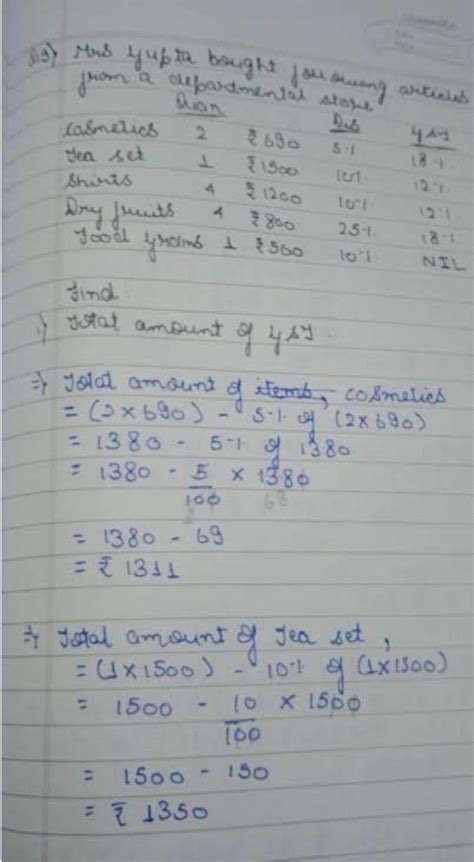 Q19) Mrs Gupta bought following articles
from a departmental store.
Quan Dis GST
Cosmetics 2 ₹690 5% 18%
Tea set 1 ₹1500 10% 12%
Shirts 4 ₹1200 10% 12%
Dry fruits 4 ₹800 25% 18%
Food grains 1 ₹500 10% NIL
Find
i) Total amount of GST.
⇒ Total amount of items, cosmetics
= (2 × 690) - 5% of (2×690)
= 1380 - 5% of 1380
= 1380 - 5/100 × 1380
69
= 1380 - 69
= ₹ 1311
⇒ Total amount of Tea set,
= (1×1500) - 10% of (1×1500)
= 1500 - 10/100 × 1500
= 1500 - 150
= ₹ 1350